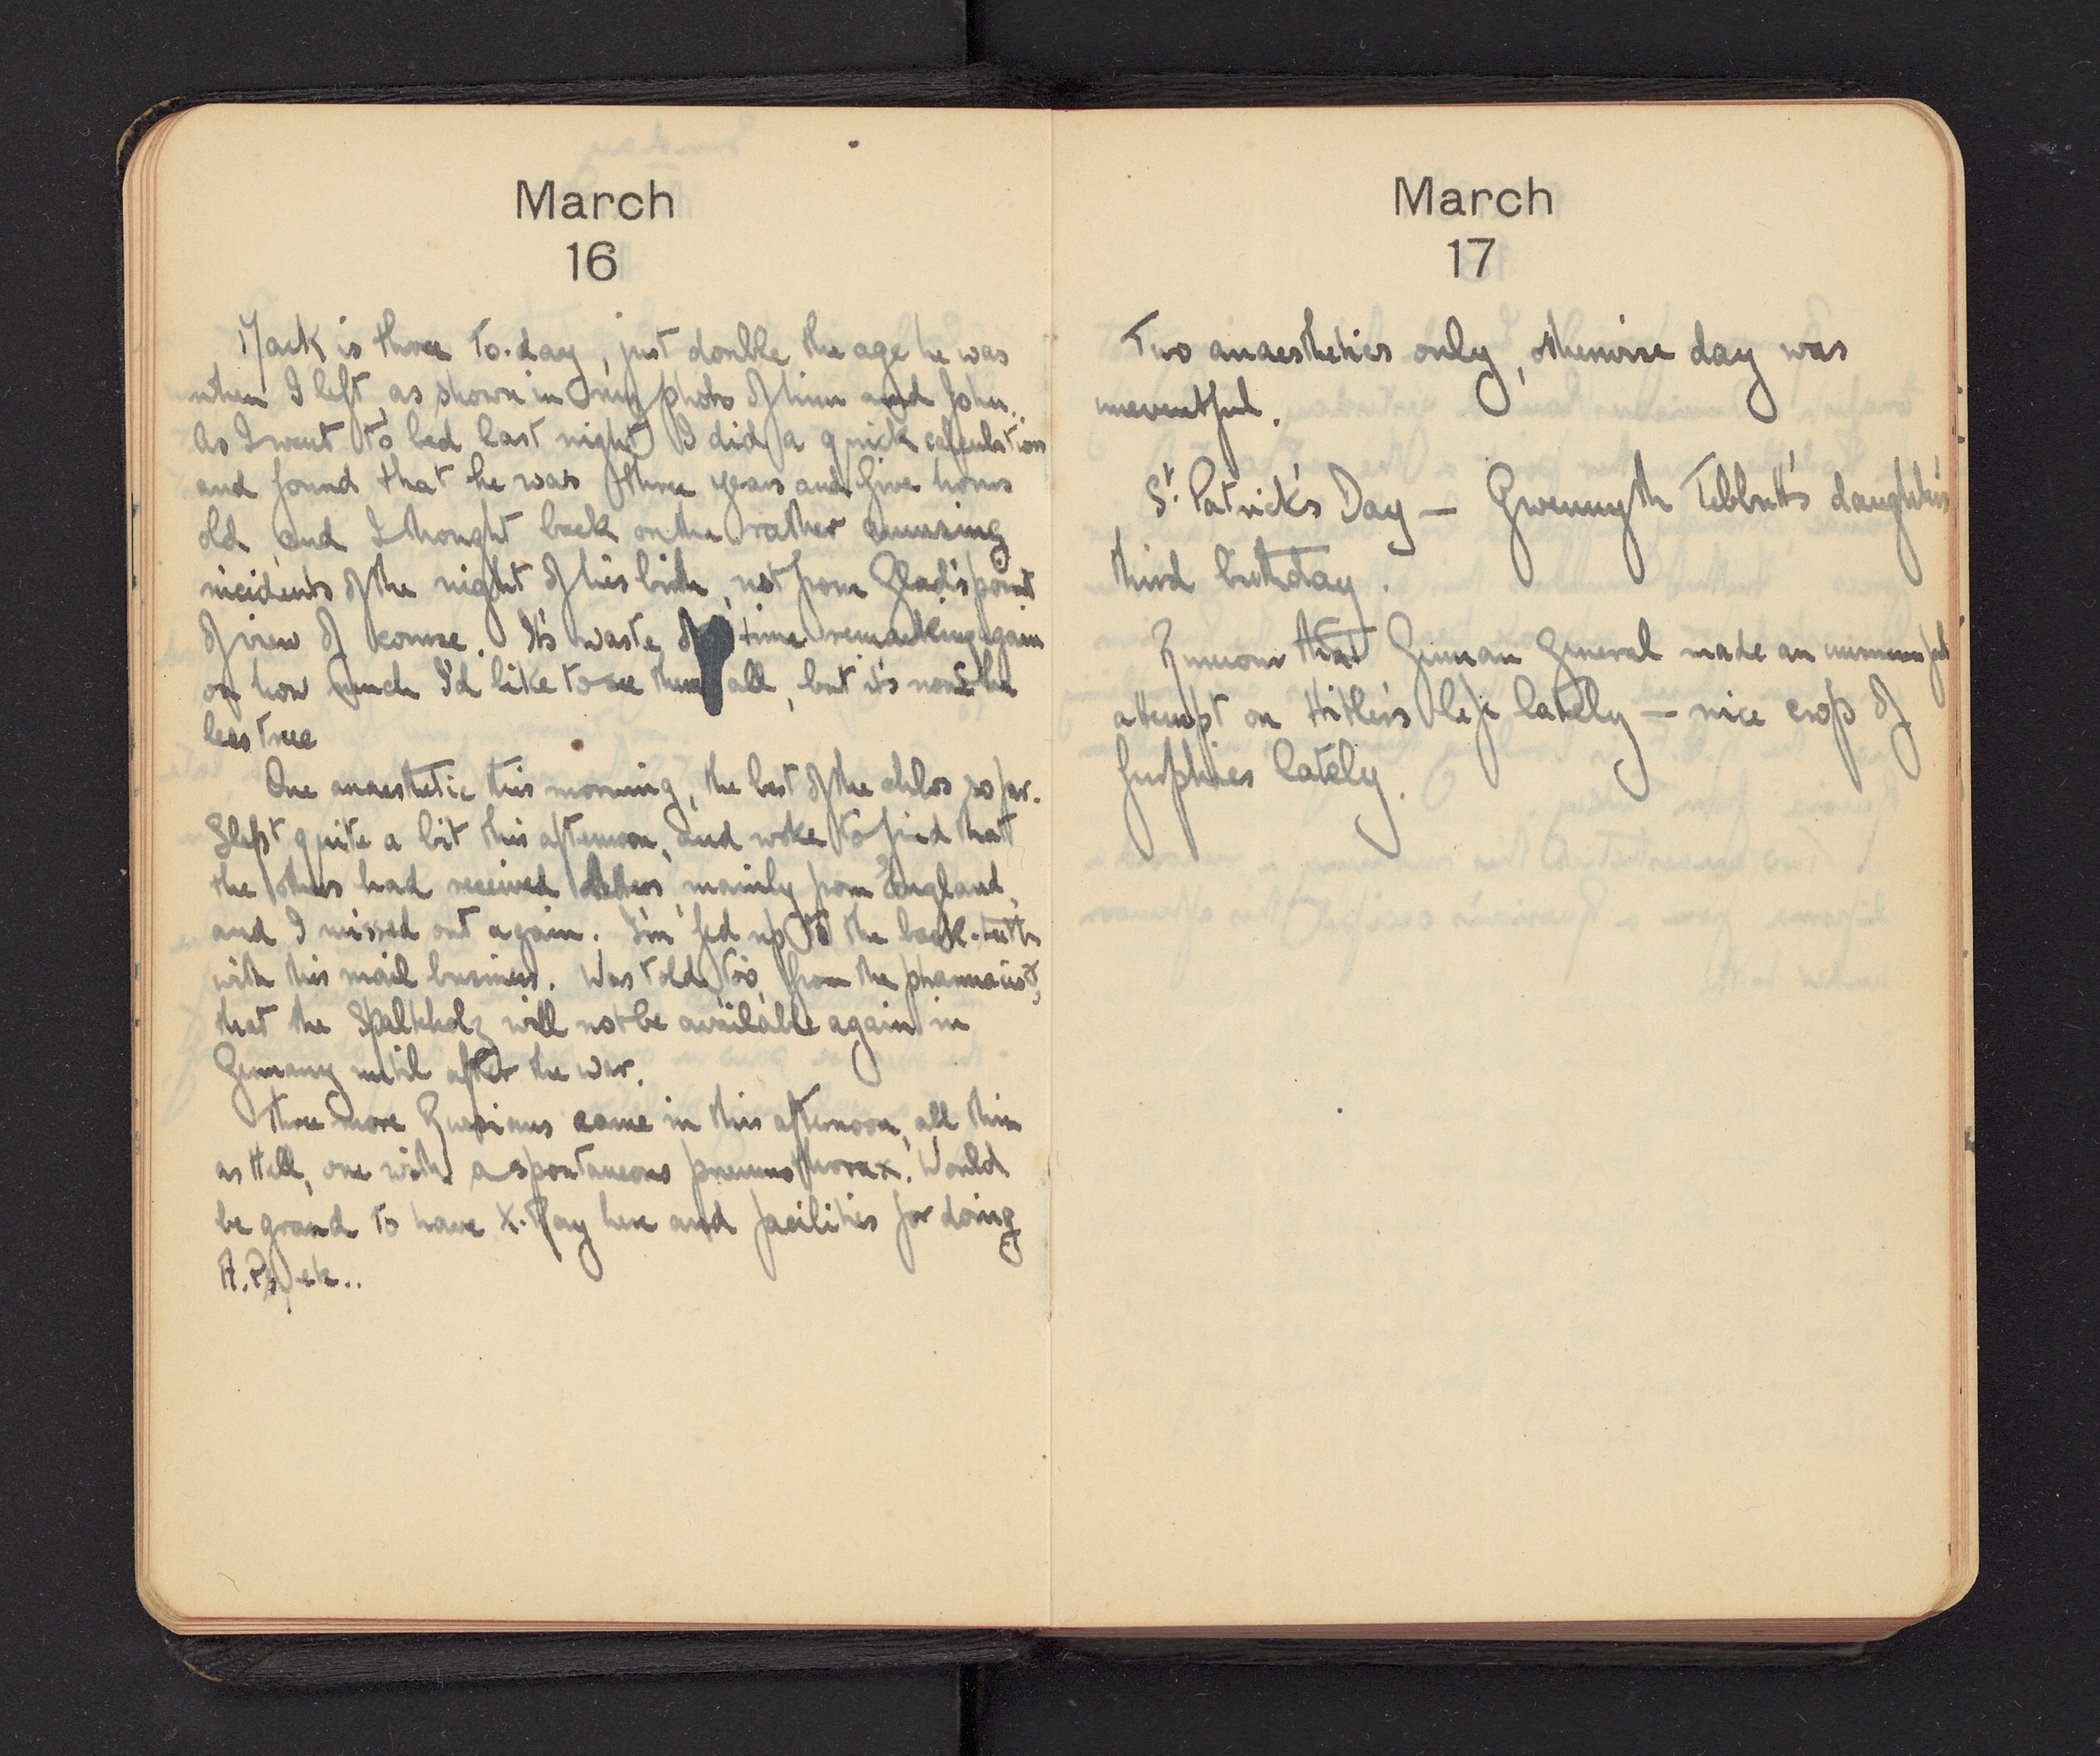 March
16
Mark is three to-day, just double the age he was
when I left, as shown in my photo of him and John..
As I went to bed last night I did a quick calculation
and found that he was three years and five hours
old, and I thought back on the rather amusing
incidents of the night of his birth, not from Glad's point
of view of course. It's waste of time remarking again
on how much I'd like to see them all, but it's none the
less true
One anaesthetic this morning, the best of the chlos so far.
Slept quite a bit this afternoon, and woke to find that
the others had received letters, mainly from England,
and I missed out again. I'm fed up to the back-teeth
with this mail business. Was told, too, from the pharmacist,
that the Spalteholz will not be available again in
Germany until after the war.
Three more Russians came in this afternoon, all thin
as Hell, one with a spontaneous pneumothorax. Would
be grand to have X-Ray here and facilities for doing
A.Ps, etc..
March
17
Two anaesthetics only, otherwise day was
uneventful.
St. Patrick's Day — Gwennyth Tebbutt's daughter's
third birthday.
Rumour that German General made an unsuccessful
attempt on Hitler's life lately — nice crop of
furphies lately.